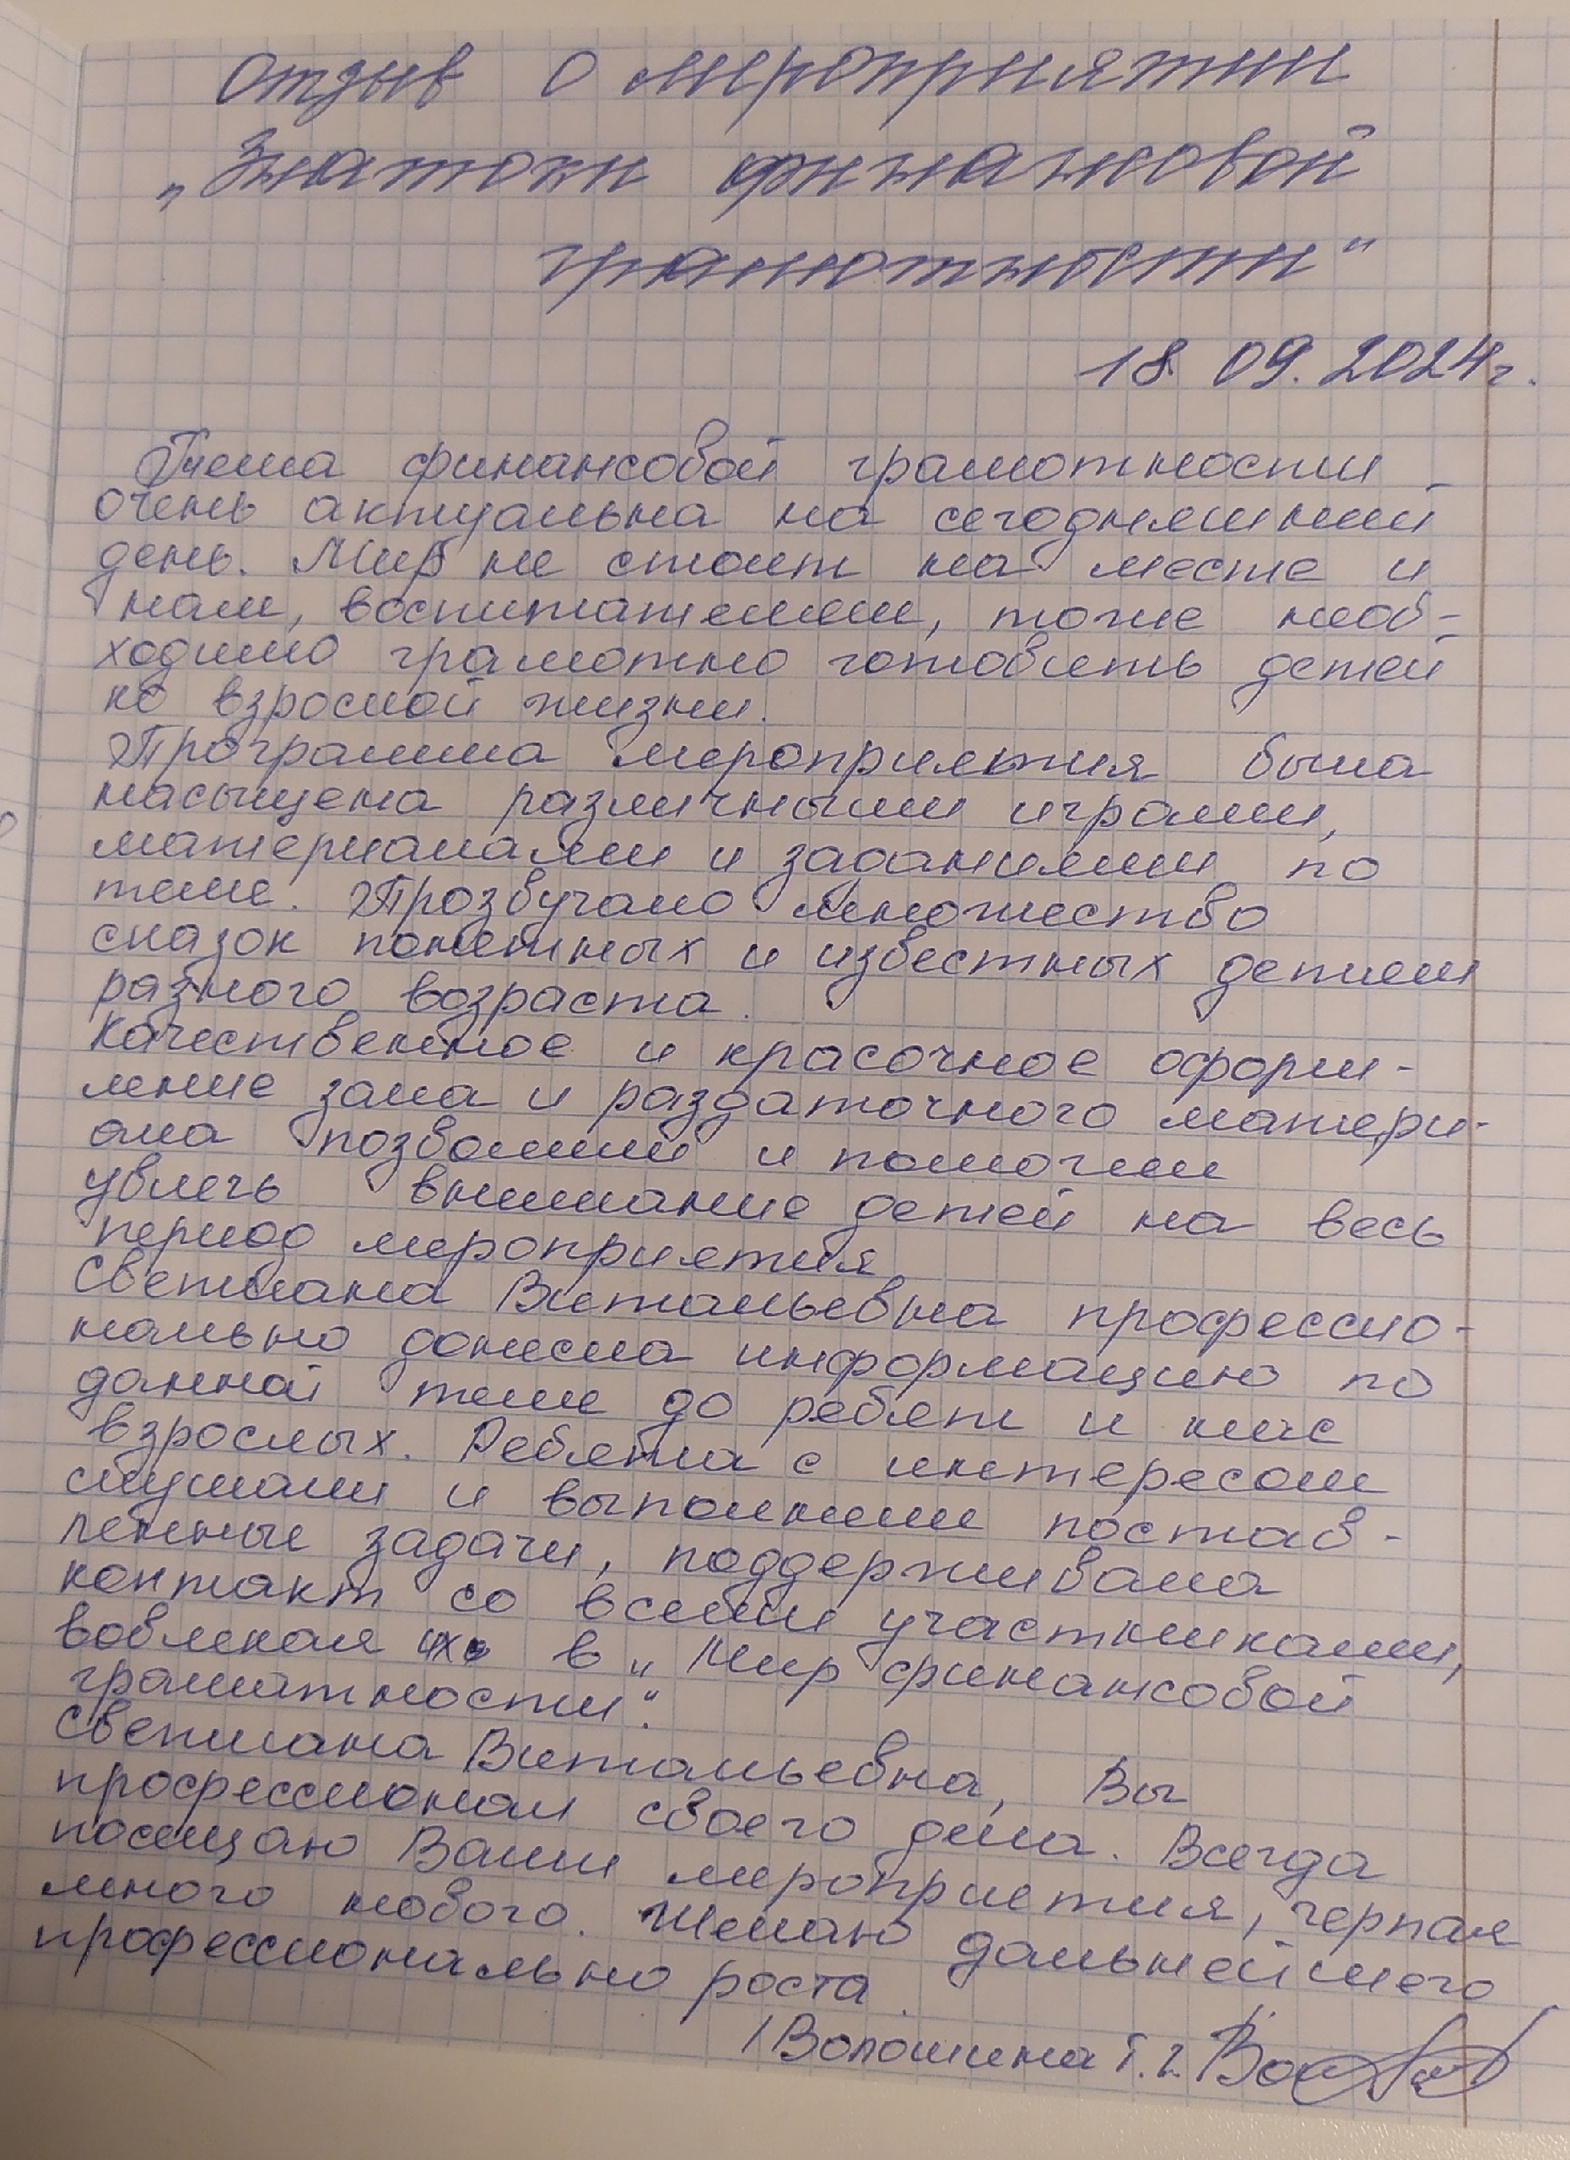 Отзыв о мероприятии
„Знатоки финансовой
грамотности“
18.09.2024г.
Тема финансовой грамотности
очень актуальна на сегодняшний
день. Мир не стоит на месте и
нам, воспитателям, тоже необ-
ходимо грамотно готовить детей
ко взрослой жизни.
Программа мероприятия была
насыщена различными играми,
материалами и заданиями по
теме. Прозвучало множество
сказок понятных и известных детям
разного возраста.
Качественное и красочное оформ-
ление зала и раздаточного матери-
ала позволили и помогли
увлечь внимание детей на весь
период мероприятия
Светлана Витальевна профессио-
нально донесла информацию по
данной теме до ребят и нас
взрослых. Ребята с интересом
слушали и выполняли постав-
ленные задачи, поддерживала
контакт со всеми участниками,
вовлекая их в „Мир финансовой
грамотности“.
Светлана Витальевна, Вы
профессионал своего дела. Всегда
посещаю Ваши мероприятия, черпая
много нового. Желаю дальнейшего
профессионально роста.
/Волошина Т.Г.